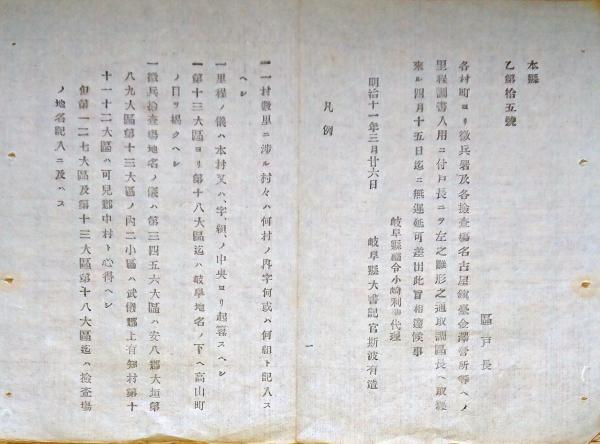 本縣
乙第拾五號
區戸長
各村町ヨリ徴兵署及各檢査場名古屋鎮臺金澤營所等ヘノ
里程調書入用ニ付戸長ニヲ左之雛形之通取調區長ヘ取纒
來ル四月十五日迄ニ無遲延可差出此旨相達候事
岐阜縣權令小崎利準代理
明治十一年三月廿六日 岐阜縣大書記官斯波有造
凡例
一
一一村數里ニ渉ル村々ハ何村ノ內字何或ハ何組ト記入ス
ヘシ
一里程ノ儀ハ本村又ハ、字、組、ノ中央ヨリ起算スヘシ
一第十三大區ヨリ第十八大區迄ハ岐阜地名ノ下ヘ高山町
ノ目ヲ揭クヘシ
一徴兵檢査場地名ノ儀ハ第三四五六大區ハ安八郡大垣第
八九大區第十三大區ノ內二小區ハ武儀郡上有知村第十
十一十二大區ハ可兒郡中村ト心得ヘシ
但第一二七大區及第十三大區第十八大區迄ハ檢査場
ノ地名記入ニ及ハス